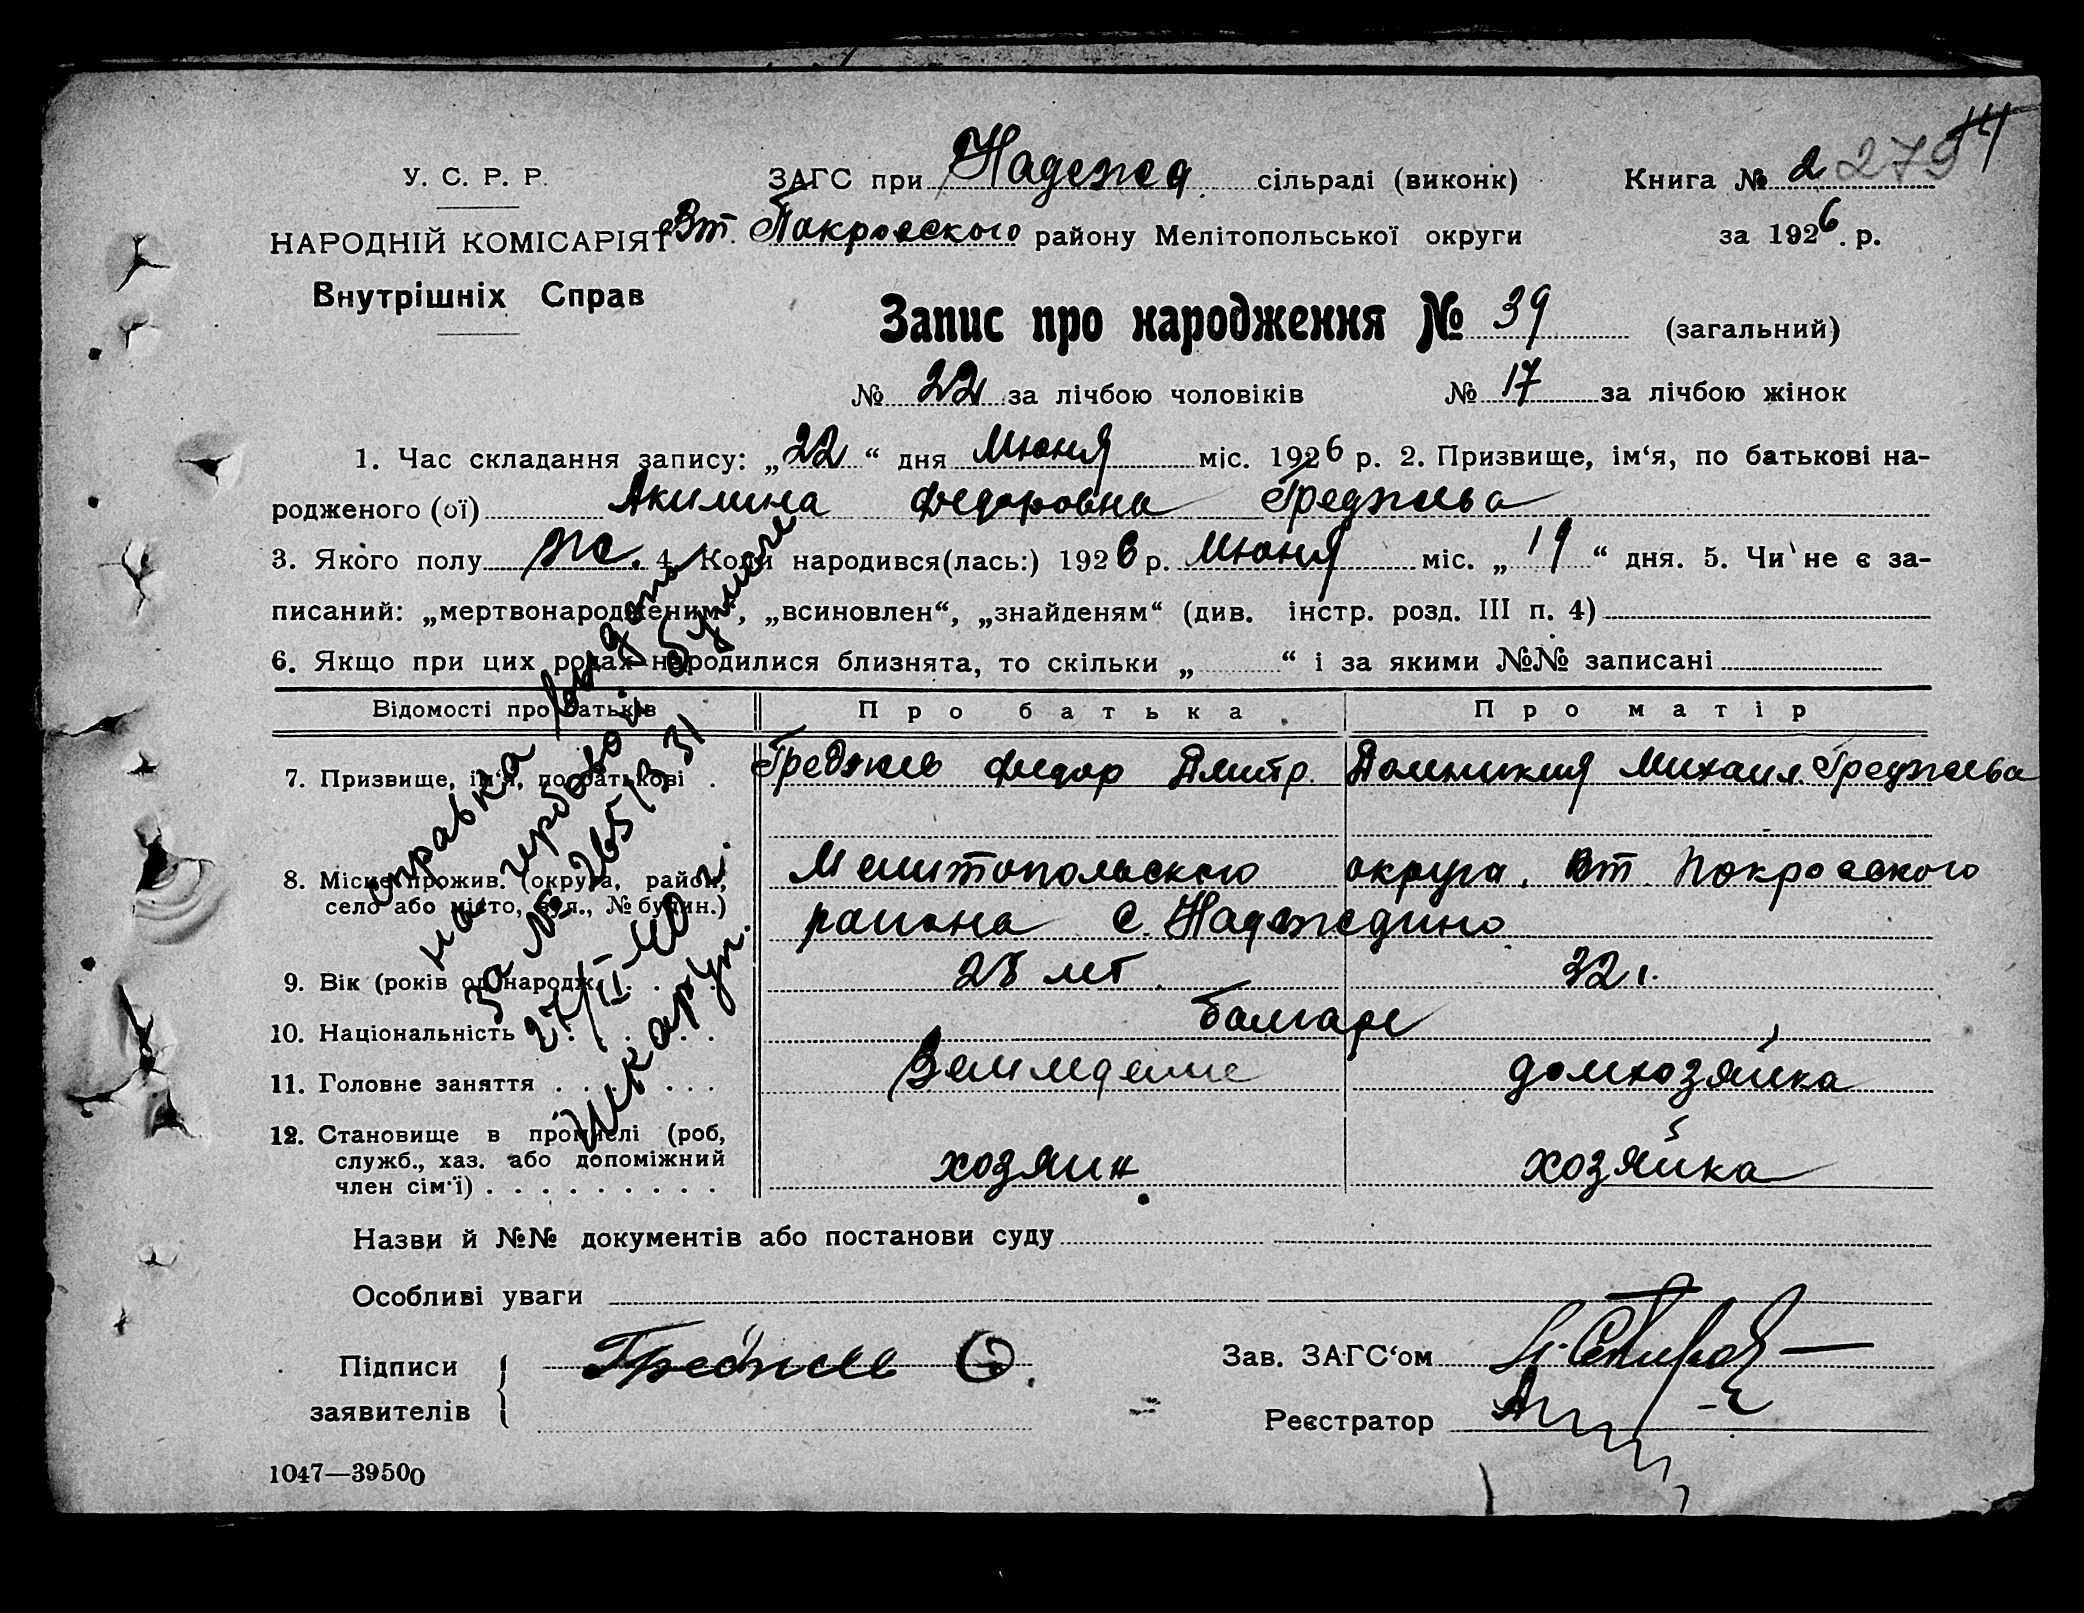 У. С. Р. Р. ЗАГС при Надежд. сільраді (виконк) Книга № 2 279
НАРОДНІЙ КОМІСАРІЯТ Вт. Покровского району Мелітопольської округи за 1926. р.
Внутрішніх Справ
Запис про народження № 39 (загальний)
№ 22 за лічбою чоловіків № 17 за лічбою жінок
1. Час складання запису: „22“ дня Июня міс. 1926 р. 2. Призвище, ім‘я, по батькові на-
родженого (ої) Акилина Федоровна Греджева
3. Якого полу ж. 4. Коли народився(лась:) 1926 р. Июня міс. „19“ дня. 5. Чи не є за-
писаний: „мертвонародженим“, „всиновлен“, „знайденям“ (див. інстр. розд. III п. 4)
6. Якщо при цих родах народилися близнята, то скільки „ “ і за якими №№ записані
Відомості про батьків Про батька Про матір
7. Призвище, ім‘я, по батькові . Греджев Федор Дмитр. Домникия Михаил. Греджева
8. Місце прожив. (округа, район, Мелитопольского округа. Вт. Покровского
село або місто, вул., № будин.) района с. Надеждино
9. Вік (років од народж. 28 лет. 32 г.
10. Національність болгаре
11. Головне заняття Земледелие домхозяйка
12. Становище в промислі (роб,
служб., хаз. або допоміжний хозяин. хозяйка
член сім‘ї)
справка выдана
на гербовой бумаге
за № 265/1331
27/II-40 г.
Назви й №№ документів або постанови суду
Особливі уваги
Підписи Греджев Ф. Зав. ЗАГС‘ом
заявителів Реєстратор
1047—39500